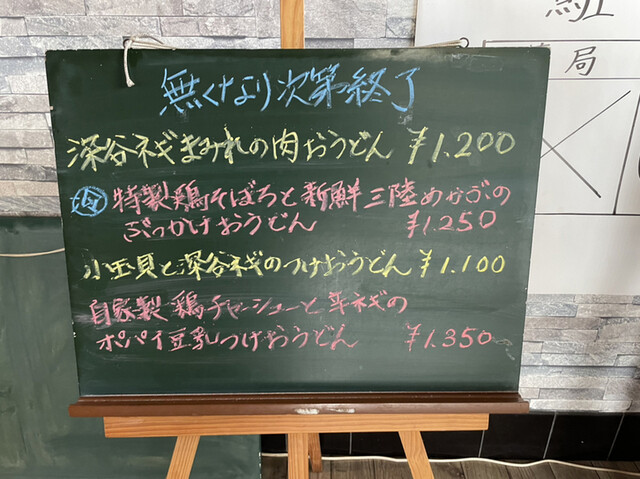 無くなり次第終了
深谷ネギまみれの肉おうどん ¥1.200
特製鶏そぼろと新鮮三陸めかぶの
ぶっかけおうどん ¥1.250
小玉貝と深谷ネギのつけおうどん ¥1.100
自家製鶏チャーシューと辛ネギの
ポパイ豆乳つけおうどん ¥1.350
局